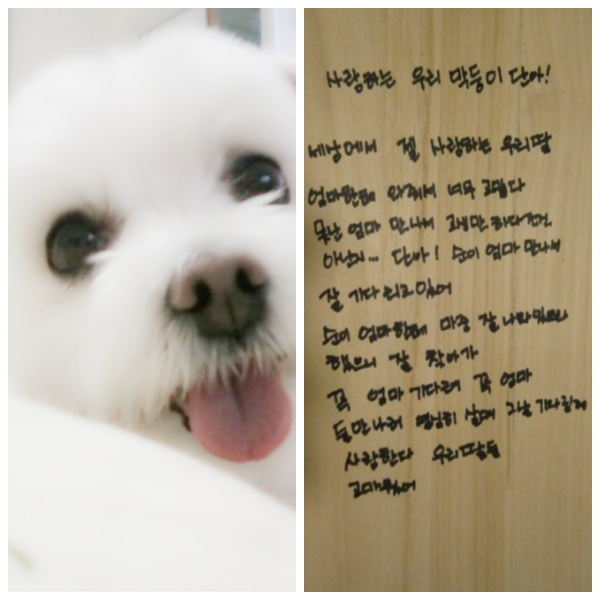 사랑하는 우리 막둥이 단아!
세상에서 젤 사랑하는 우리딸
엄마한테 와줘서 너무 고맙다
못난 엄마 만나서 고생만 하다간건
아닌지... 단아! 순이 엄마 만나서
잘 기다리고있어
순이 엄마한테 마중 잘 나와있으라
했으니 잘 찾아가
꼭 엄마 기다려 꼭 엄마
둘만나러 열심히 살며 그날 기다릴께
사랑한다 우리딸들
고마웠어